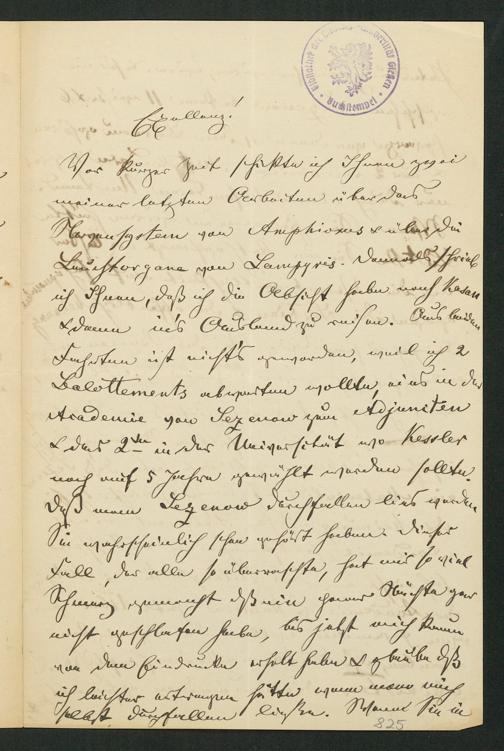 Bibliothek der Universität Giessen
Buchstempel
Exellenz!
Vor kurzer Zeit schickte ich Ihnen zwei
meiner letzten Arbeiten über das
Nervensystem von Amphioxus & über die
Leuchtorgane von Lampyris. Damals schrieb
ich Ihnen, daß ich die Absicht habe nach Kasan
& dann in's Ausland zu reisen. Aus beiden
Fahrten ist nichts geworden, weil ich 2
Balottements abwarten wollte, eins in der
Academie von Sezenow zum Adjuncten
& das 2te in der Universität wo Kessler
noch auf 5 Jahre gewählt werden sollte.
Daß man Sezenow durchfallen lies werden
Sie wahrscheinlich schon gehört haben. Dieser
Fall, der alle so überraschte, hat mir so viel
Schmerz gemacht dß ich Nächte gar
nicht geschlafen habe, bis jetzt mich kaum
von dem Eindrucke erholt habe & glaube dß
ich leichter ertragen hätte wenn man mich
selbst durchfallen ließe. Wenn Sie in
825